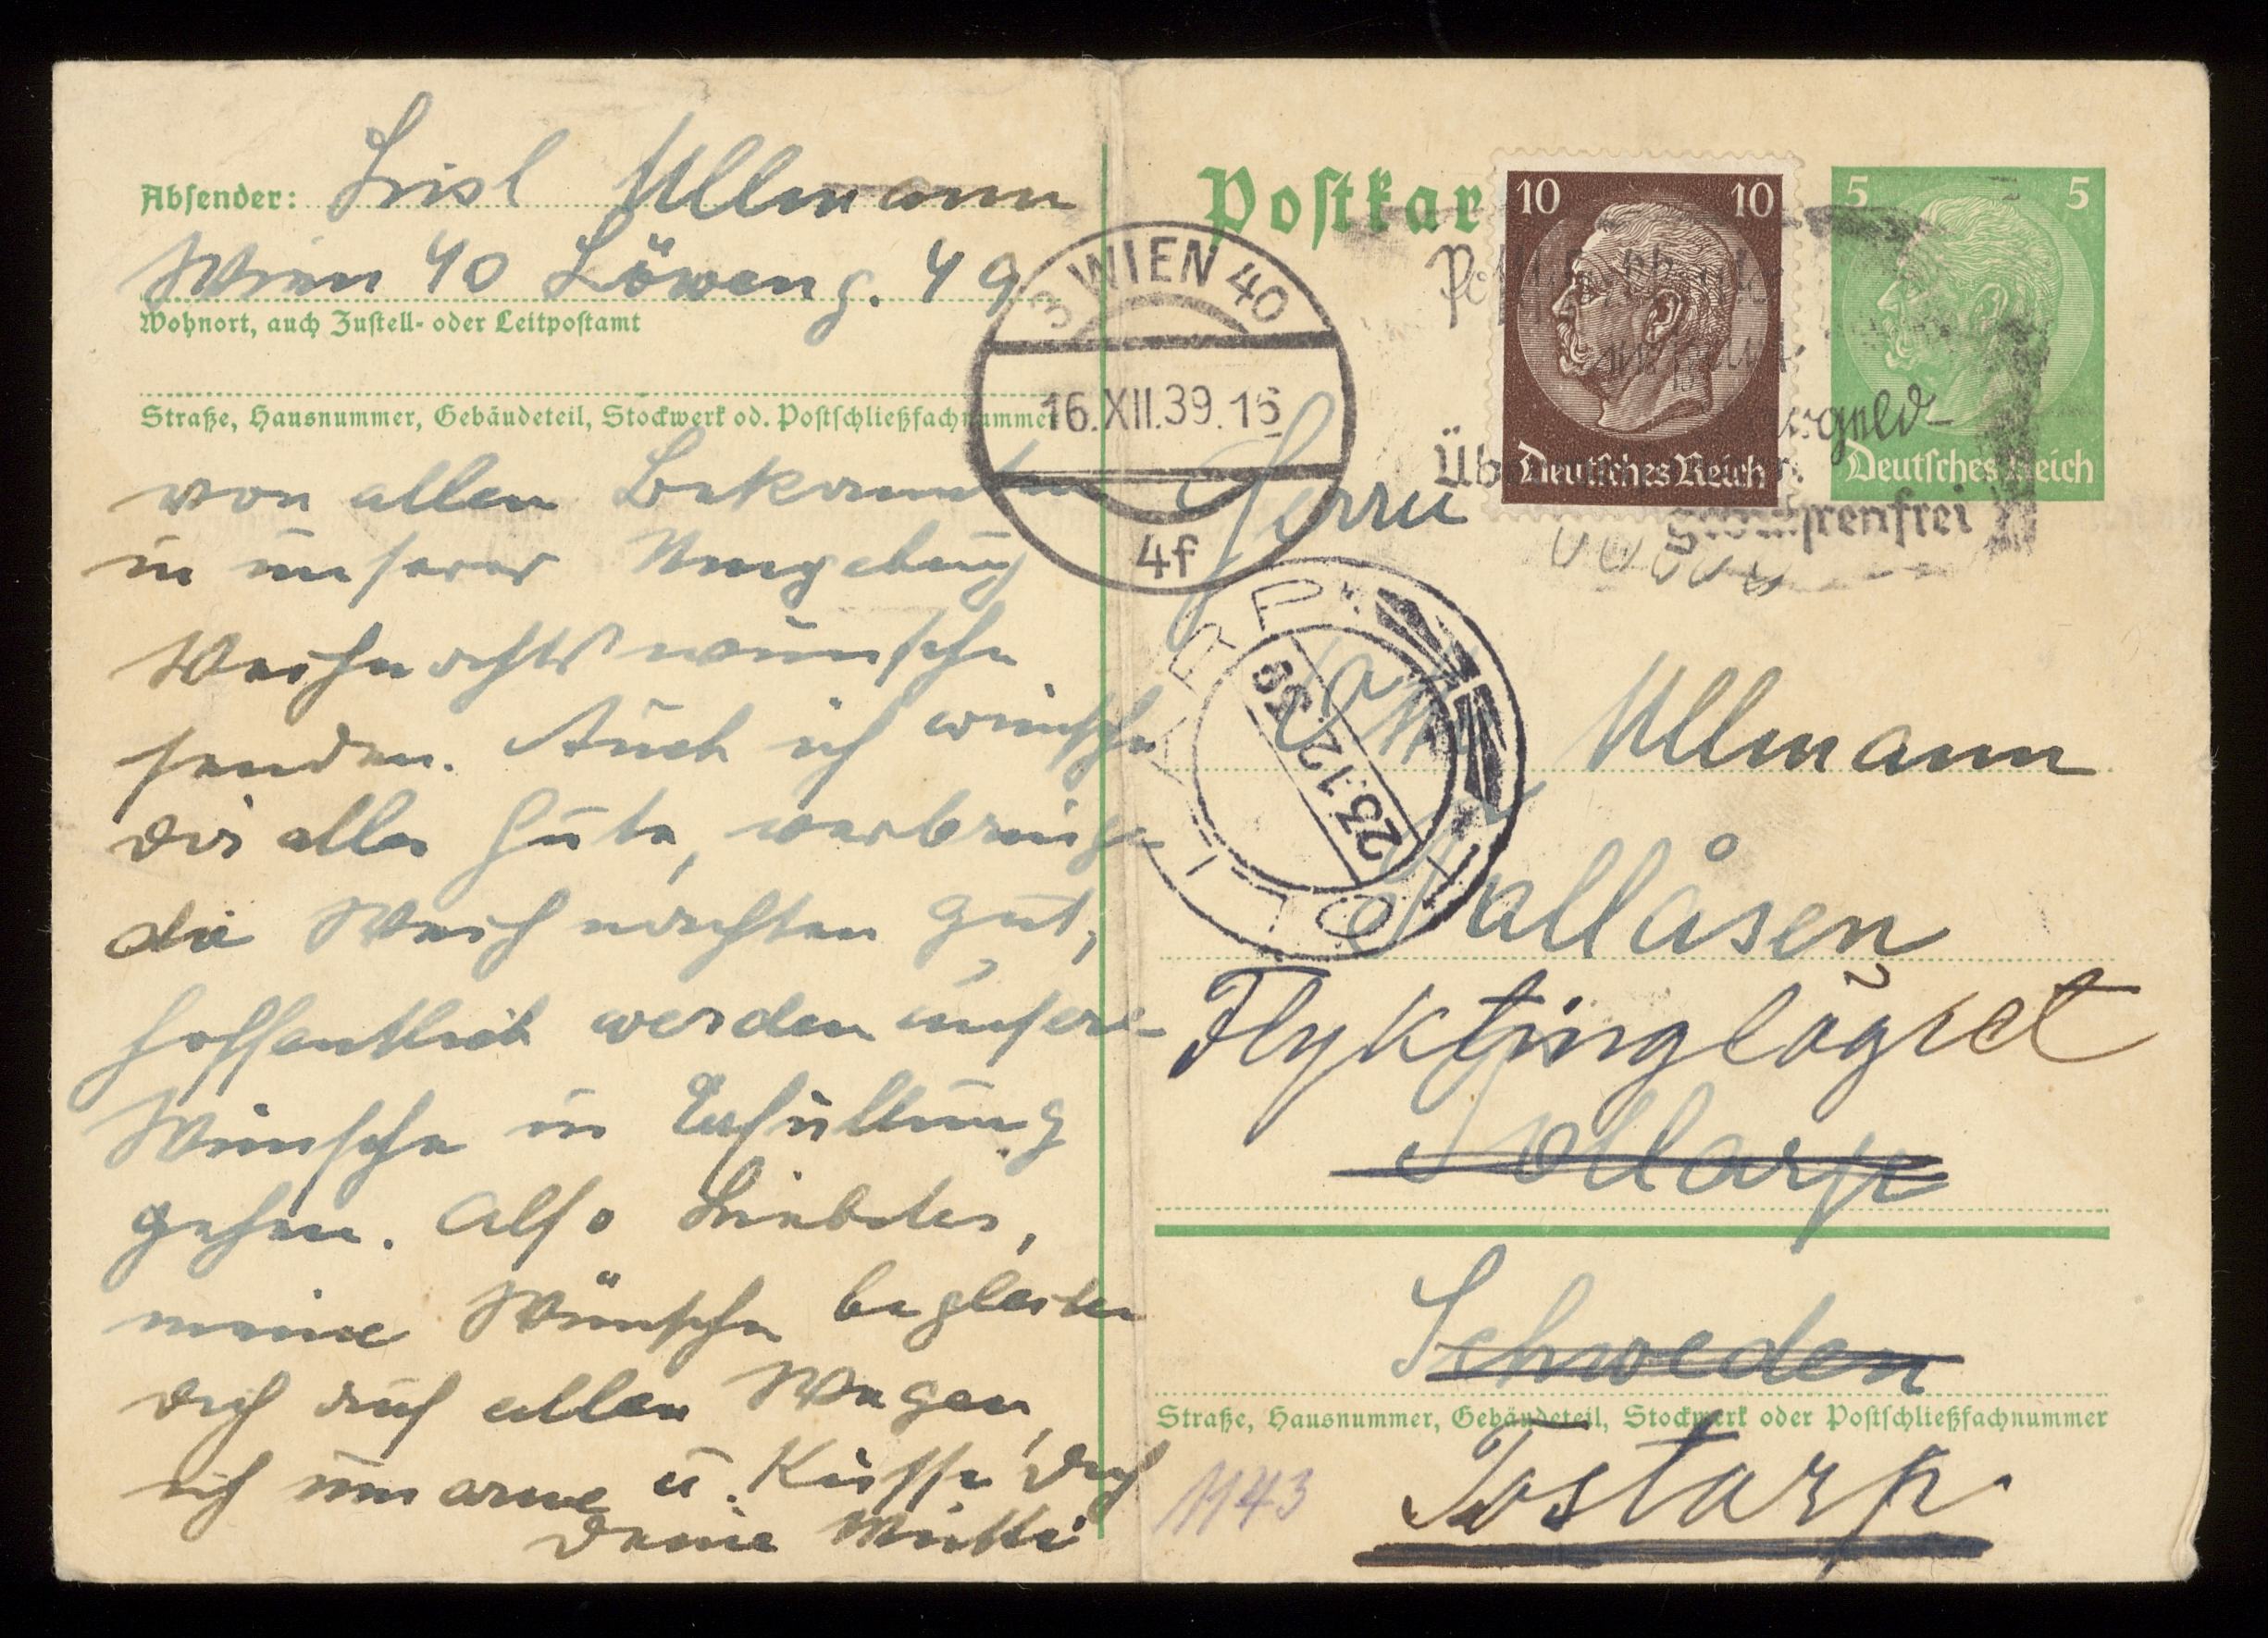 Absender: Lisl Ullmann
Wien 40 Löweng. 49
Wohnort, auch Zustell- oder Leitpostamt
Straße, Hausnummer, Gebäudeteil, Stockwerk od. Postschließfachnummer
von allen Bekannten
in unserer Umgebung
Weihnachtswünsche
senden. Auch ich wünsche
Dir alles Gute, verbringe
die Weihnachten gut,
hoffentlich werden unsere
Wünsche in Erfüllung
gehen. Also Liebstes,
meine Wünsche begleiten
Dich auf allen Wegen,
ich umarme u. Küsse Dich
Deine Mutti
3 WIEN 40
16.XII.39.16
4f
Postkar
10 10
Deutsches Reich
5 5
Deutsches Reich
gebührenfrei
Herrn
Otto Ullmann
23.12.39
Tallåsen
Flyktinglägret
Tollarp
Schweden
Straße, Hausnummer, Gebäudeteil, Stockwerk oder Postschließfachnummer
1143
Tostarp.